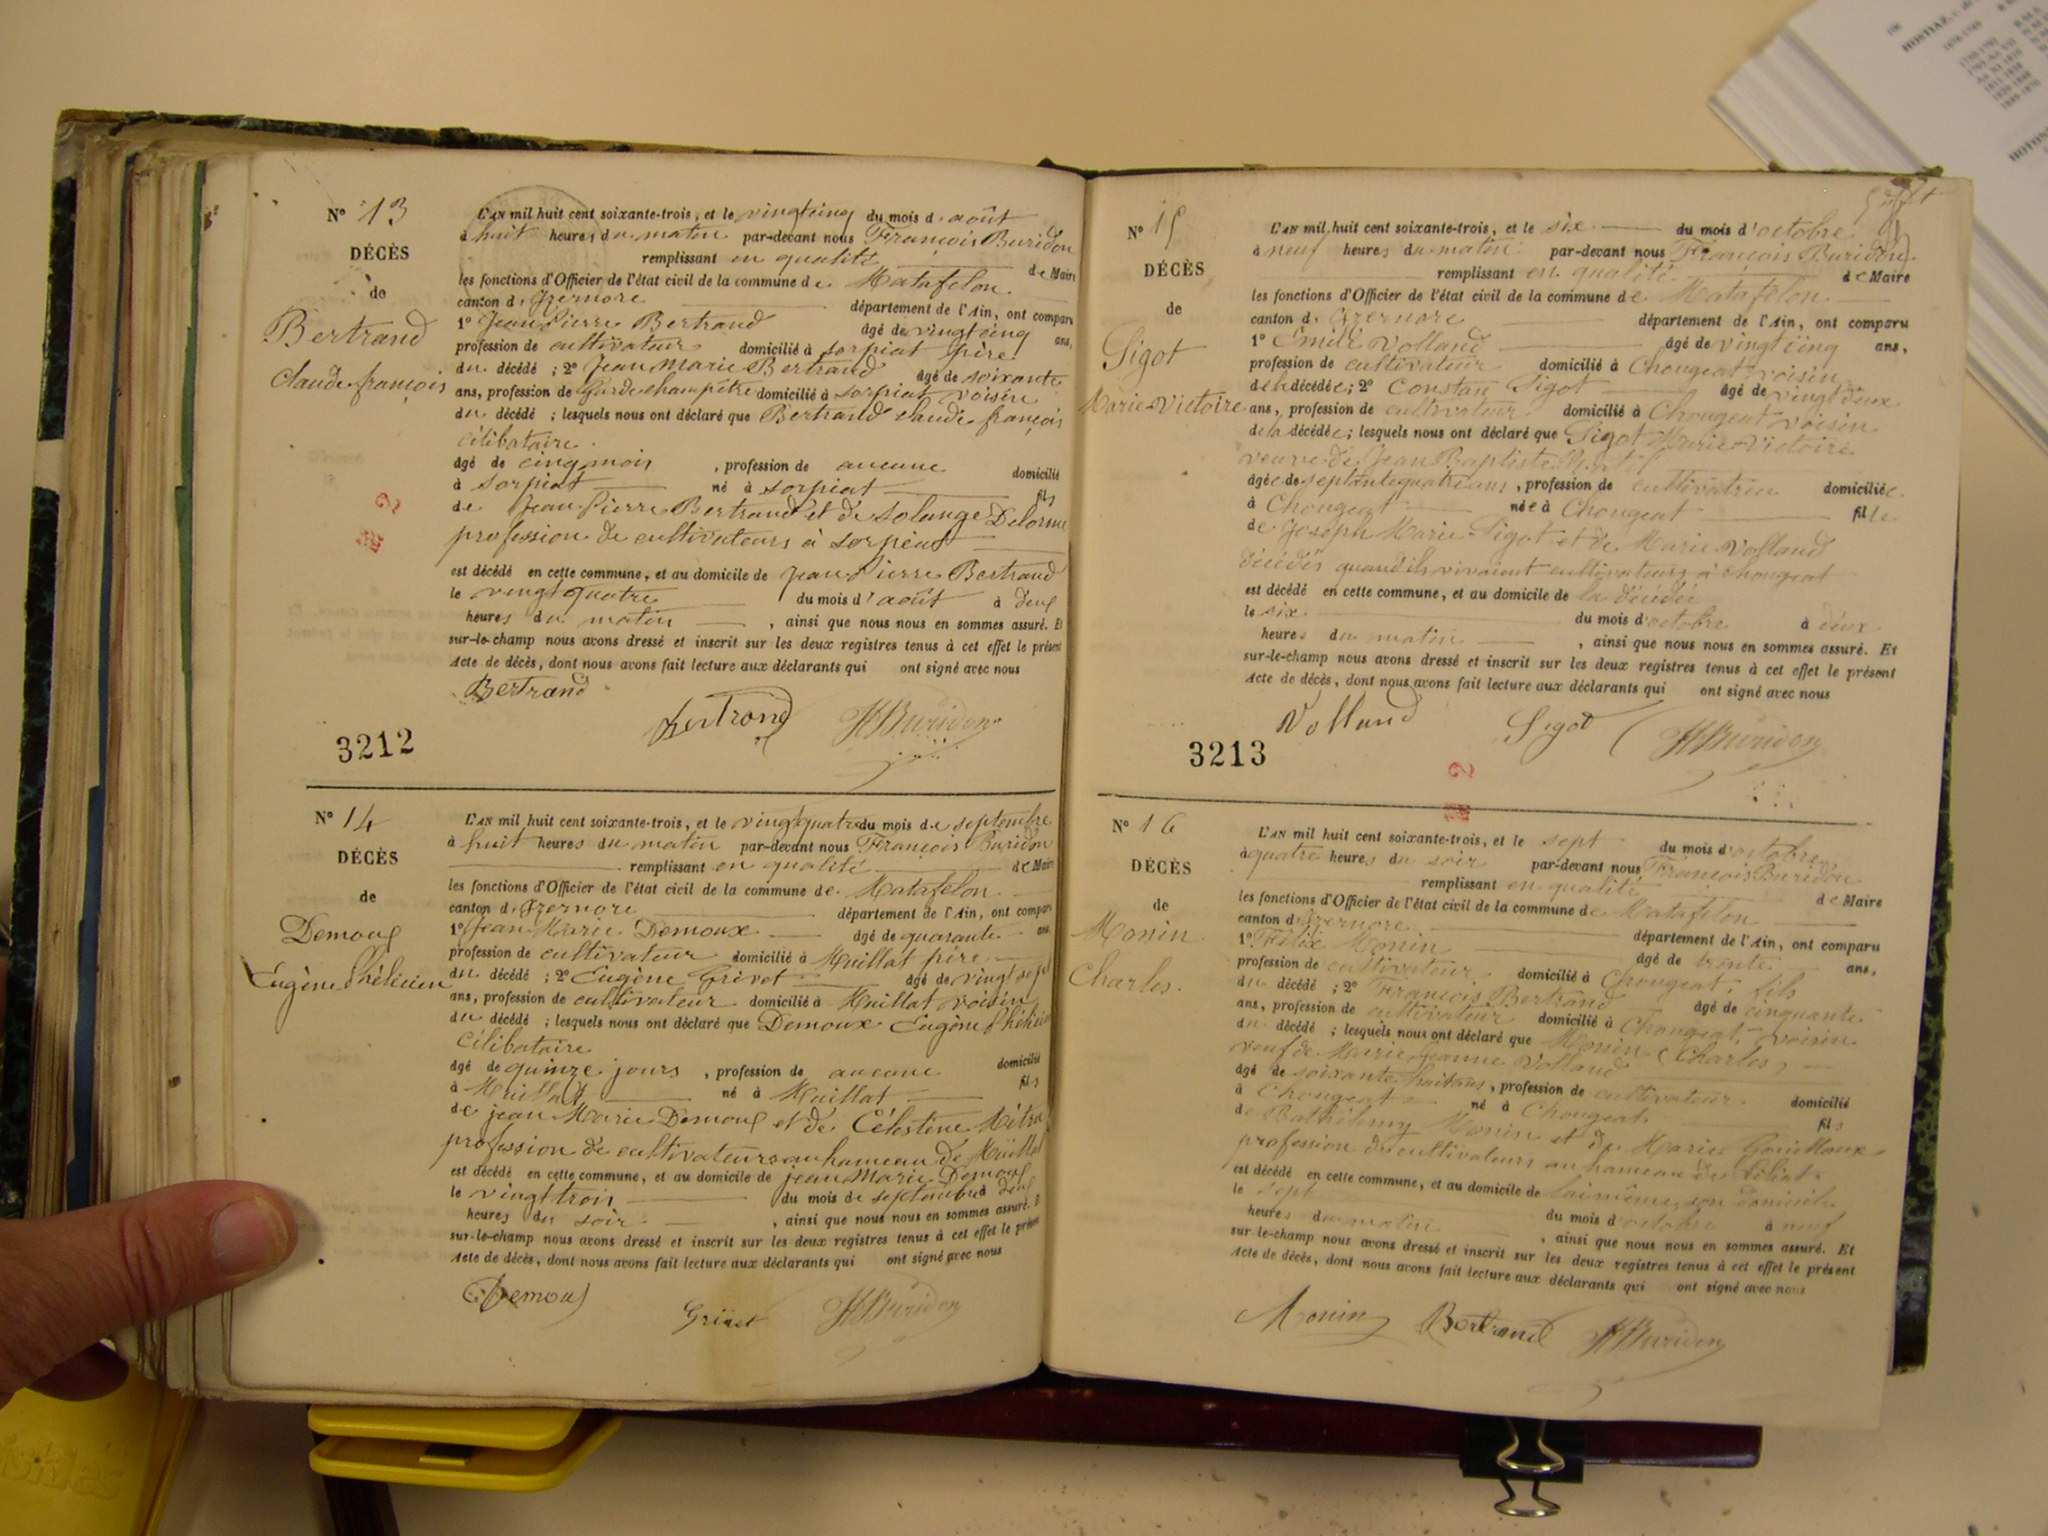 N° 13
DÉCÈS
de
Bertrand
Claude françois
L'AN mil huit cent soixante-trois, et le vingtcinq du mois d'août
à huit heures du matin par-devant nous François Buridon
remplissant en qualité de Maire
les fonctions d'Officier de l'état civil de la commune de Matafelon
canton d'Izernore département de l'Ain, ont comparu
1° Jean Pierre Bertrand âgé de vingtcinq ans,
profession de cultivateur domicilié à sorpiat père
du décédé ; 2° Jean Marie Bertrand âgé de soixante
ans, profession de Garde champêtre domicilié à sorpiat voisin
du décédé ; lesquels nous ont déclaré que Bertrand Claude françois
célibataire
âgé de cinq mois , profession de aucune domicilié
à sorpiat né à sorpiat fils
de Jean Pierre Bertrand et de Solange Delorme
profession de cultivateurs à sorpiat
est décédé en cette commune, et au domicile de Jean Pierre Bertrand
le vingt quatre du mois d'août à deux
heures du matin , ainsi que nous nous en sommes assuré. Et
sur-le-champ nous avons dressé et inscrit sur les deux registres tenus à cet effet le présent
Acte de décès, dont nous avons fait lecture aux déclarants qui ont signé avec nous
Bertrand
Bertrand Buridon
3212
N° 14
DÉCÈS
de
Demoux
Eugène Phélicien
L'AN mil huit cent soixante-trois, et le vingtquatre du mois de septembre
à huit heures du matin par-devant nous François Buridon
remplissant en qualité de Maire
les fonctions d'Officier de l'état civil de la commune de Matafelon
canton d'Izernore département de l'Ain, ont comparu
1° Jean Marie Demoux âgé de quarante ans
profession de cultivateur domicilié à Heillat père
du décédé ; 2° Eugène Grivet âgé de vingt sept
ans, profession de cultivateur domicilié à Heillat voisin
du décédé ; lesquels nous ont déclaré que Demoux Eugène Phélicien
célibataire
âgé de quinze jours , profession de aucune domicilié
à Heillat né à Heillat fils
de jean Marie Demoux et de Célestine
profession de cultivateurs au hameau de Heillat
est décédé en cette commune, et au domicile de jean Marie Demoux
le vingt trois du mois de septembre à deux
heures du soir , ainsi que nous nous en sommes assuré. E
sur-le-champ nous avons dressé et inscrit sur les deux registres tenus à cet effet le présent
Acte de décès, dont nous avons fait lecture aux déclarants qui ont signé avec nous
Demoux
Grivet Buridon
N° 15
DÉCÈS
de
Sigot
Marie-Victoire
L'AN mil huit cent soixante-trois, et le six du mois d'octobre
à neuf heures du matin par-devant nous François Buridon
remplissant en qualité de Maire
les fonctions d'Officier de l'état civil de la commune de Matafelon
canton d'Izernore département de l'Ain, ont comparu
1° Emile Volland âgé de vingt cinq ans,
profession de cultivateur domicilié à Chougeat voisin
de la décédée ; 2° Constan Sigot âgé de vingt deux
ans, profession de cultivateur domicilié à Chougeat voisin
de la décédée ; lesquels nous ont déclaré que Sigot Marie-Victoire
veuve de Jean Baptiste
âgée de septantequatre ans , profession de cultivatrice domiciliée
à Chougeat née à Chougeat fille
de Joseph Marie Sigot et de Marie Volland
décédés quand ils vivaient cultivateurs à chougeat
est décédé en cette commune, et au domicile de la décédée
le six du mois d'octobre à deux
heures du matin , ainsi que nous nous en sommes assuré. Et
sur-le-champ nous avons dressé et inscrit sur les deux registres tenus à cet effet le présent
Acte de décès, dont nous avons fait lecture aux déclarants qui ont signé avec nous
Volland Sigot Buridon
3213
N° 16
DÉCÈS
de
Monin
Charles.
L'AN mil huit cent soixante-trois, et le sept du mois d'octobre
à quatre heures du soir par-devant nous François Buridon
remplissant en qualité de Maire
les fonctions d'Officier de l'état civil de la commune de Matafelon
canton d'Izernore département de l'Ain, ont comparu
1° Félix Monin âgé de trente ans,
profession de cultivateur domicilié à Chougeat, fils
du décédé ; 2° François Bertrand âgé de cinquante
ans, profession de cultivateur domicilié à Chougeat, voisin
du décédé ; lesquels nous ont déclaré que Monin (Charles)
veuf de Marie Jeanne Volland
âgé de soixante huit ans, profession de cultivateur domicilié
à Chougeat né à Chougeat fils
de Barthélemy Monin et de Marie Gouilloux
profession de cultivateurs au hameau de
est décédé en cette commune, et au domicile de lui même, son domicile
le sept du mois d'octobre à neuf
heures du matin , ainsi que nous nous en sommes assuré. Et
sur-le-champ nous avons dressé et inscrit sur les deux registres tenus à cet effet le présent
Acte de décès, dont nous avons fait lecture aux déclarants qui ont signé avec nous
Monin Bertrand Buridon